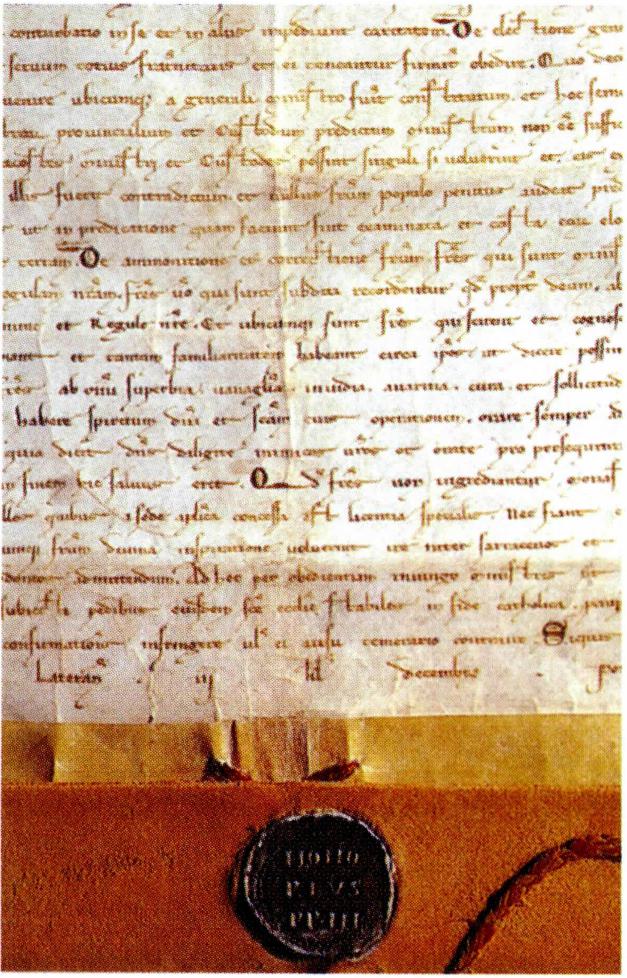 conturbatio in se et in aliis impediunt caritatem. De electione gen
seruum totius fraternitatis et ei teneantur firmit obedire. Quo dec
uenire ubicumq; a generali ministro fuit constitutum. et hoc seme
prouincialium et Custodum predictum ministrum non eē suffic
ministri et Custodes possint singuli si uoluerint et eis
illis fuerit contradictum. et nullus frm populo penitus audeat pred
ut in predicatione quam faciunt sint examinata et casta eorum elo
terram. De ammonitione et correctione frum. frēs qui sunt minis
regulam nrām. frēs uō qui sunt subditi recordentur qd propt deum. ab
et Regule nrē. Et ubicumq; sunt frēs qui scirent et cognos
et tantam familiaritatem habeant circa ipos ut dicere possin
ab omi superbia. uanaglia. inuidia. auaritia. cura. et sollicitud
habere spiritum dni et scām eius operationem. orare semper ad
quia dicit dns diligite inimicos uros et orate pro persequenti
in finem hic saluus erit. Qd frēs non ingrediantur monast
quibus a sede aplica concessa est licentia specialis. Nec fiant
frum diuina inspiratione uoluerint ire inter sarracenos et
admittendum. Ad hec per obedientiam iniungo ministris ut
subiecti pedibus eiusdem scē ecclie stabiles in fide catholica. paup
confirmationis infringere ul ei ausu temerario contraire. Siquis
Lateran iij kl decembris po
HONO
RIUS
PP·III